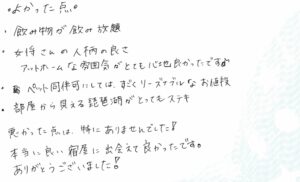 ◦よかった点。
・飲み物が飲み放題
・女将さんの人柄の良さ
アットホームな雰囲気がとても心地良かったです♂
・ペット同伴可にしては、すごくリーズナブルなお値段
・部屋から見える琵琶湖がとってもステキ
悪かった点は、特にありませんでした!
本当に良い宿屋に出会えて良かったです。
ありがとうございました!